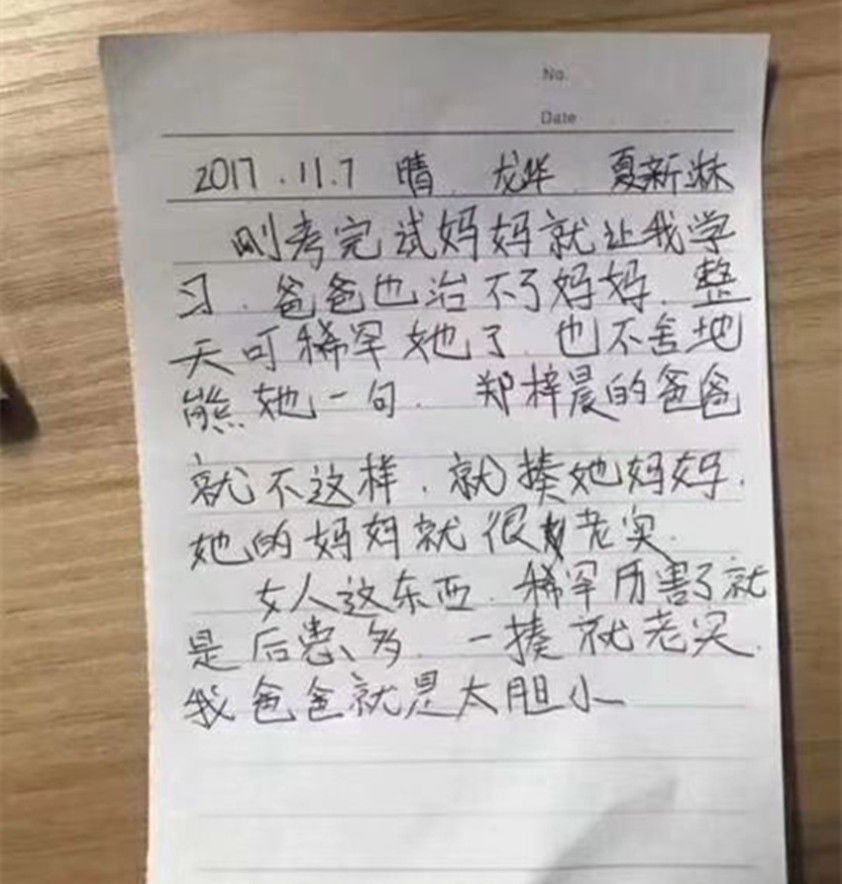 No.
Date
2017.11.7 晴. 龙华. 夏新淋
刚考完试妈妈就让我学
习. 爸爸也治不了妈妈. 整
天可稀罕她了. 也不舍地
熊她一句. 郑梓晨的爸爸
就不这样. 就揍她妈妈.
她的妈妈就很老实.
女人这东西. 稀罕历害了就
是后患多. 一揍就老实.
我爸爸就是太胆小